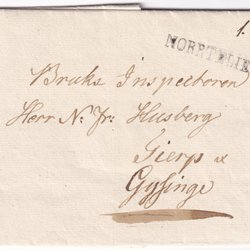 1.
NORRTELJE
Bruks Inspectoren
Herr N: Fr: Husberg
Gierp &
Gysinge